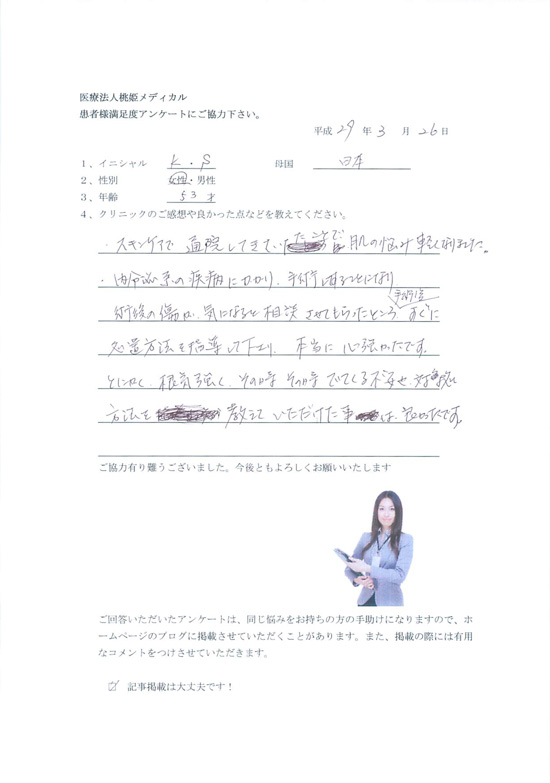 医療法人桃姫メディカル
患者様満足度アンケートにご協力下さい。
平成 29 年 3 月 26 日
1、イニシャル K・S 母国 日本
2、性別 女性・男性
3、年齢 53才
4、クリニックのご感想や良かった点などを教えてください。
・スキンケアで 通院してきていたことで 肌の悩み 軽くなりました。
・内分泌系の疾病にかかり、手術することになり
手術後
術後の傷が、気になると相談させてもらったところ、すぐに
処置方法を指導して下さり、本当に心強かったです。
とにかく、根気強く、その時その時でてくる不安や、対処
方法を 教えていただけた事は、良かったです。
ご協力有り難うございました。今後ともよろしくお願いいたします
ご回答いただいたアンケートは、同じ悩みをお持ちの方の手助けになりますので、ホ
ームページのブログに掲載させていただくことがあります。また、掲載の際には有用
なコメントをつけさせていただきます。
☑ 記事掲載は大丈夫です！